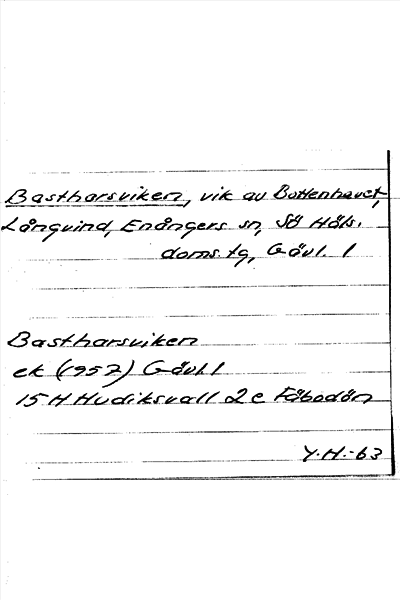 Bastharsviken, vik av Bottenhavet,
Långvind, Enångers sn, Sö Häls.
doms. tg, Gävl. l
Bastharsviken
ek (1957) Gävl. l
15 H Hudiksvall 2 c Fäbodön
Y.H.-63